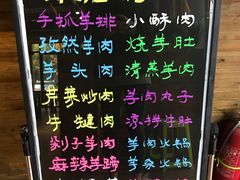 手抓羊排 小酥肉
孜然羊肉 烧羊肚
羊头肉 清蒸羊肉
芹菜炒肉 羊肉丸子
牛腱肉 凉拌牛肚
剁子羊肉 羊肉火锅
麻辣羊蹄 羊杂火锅